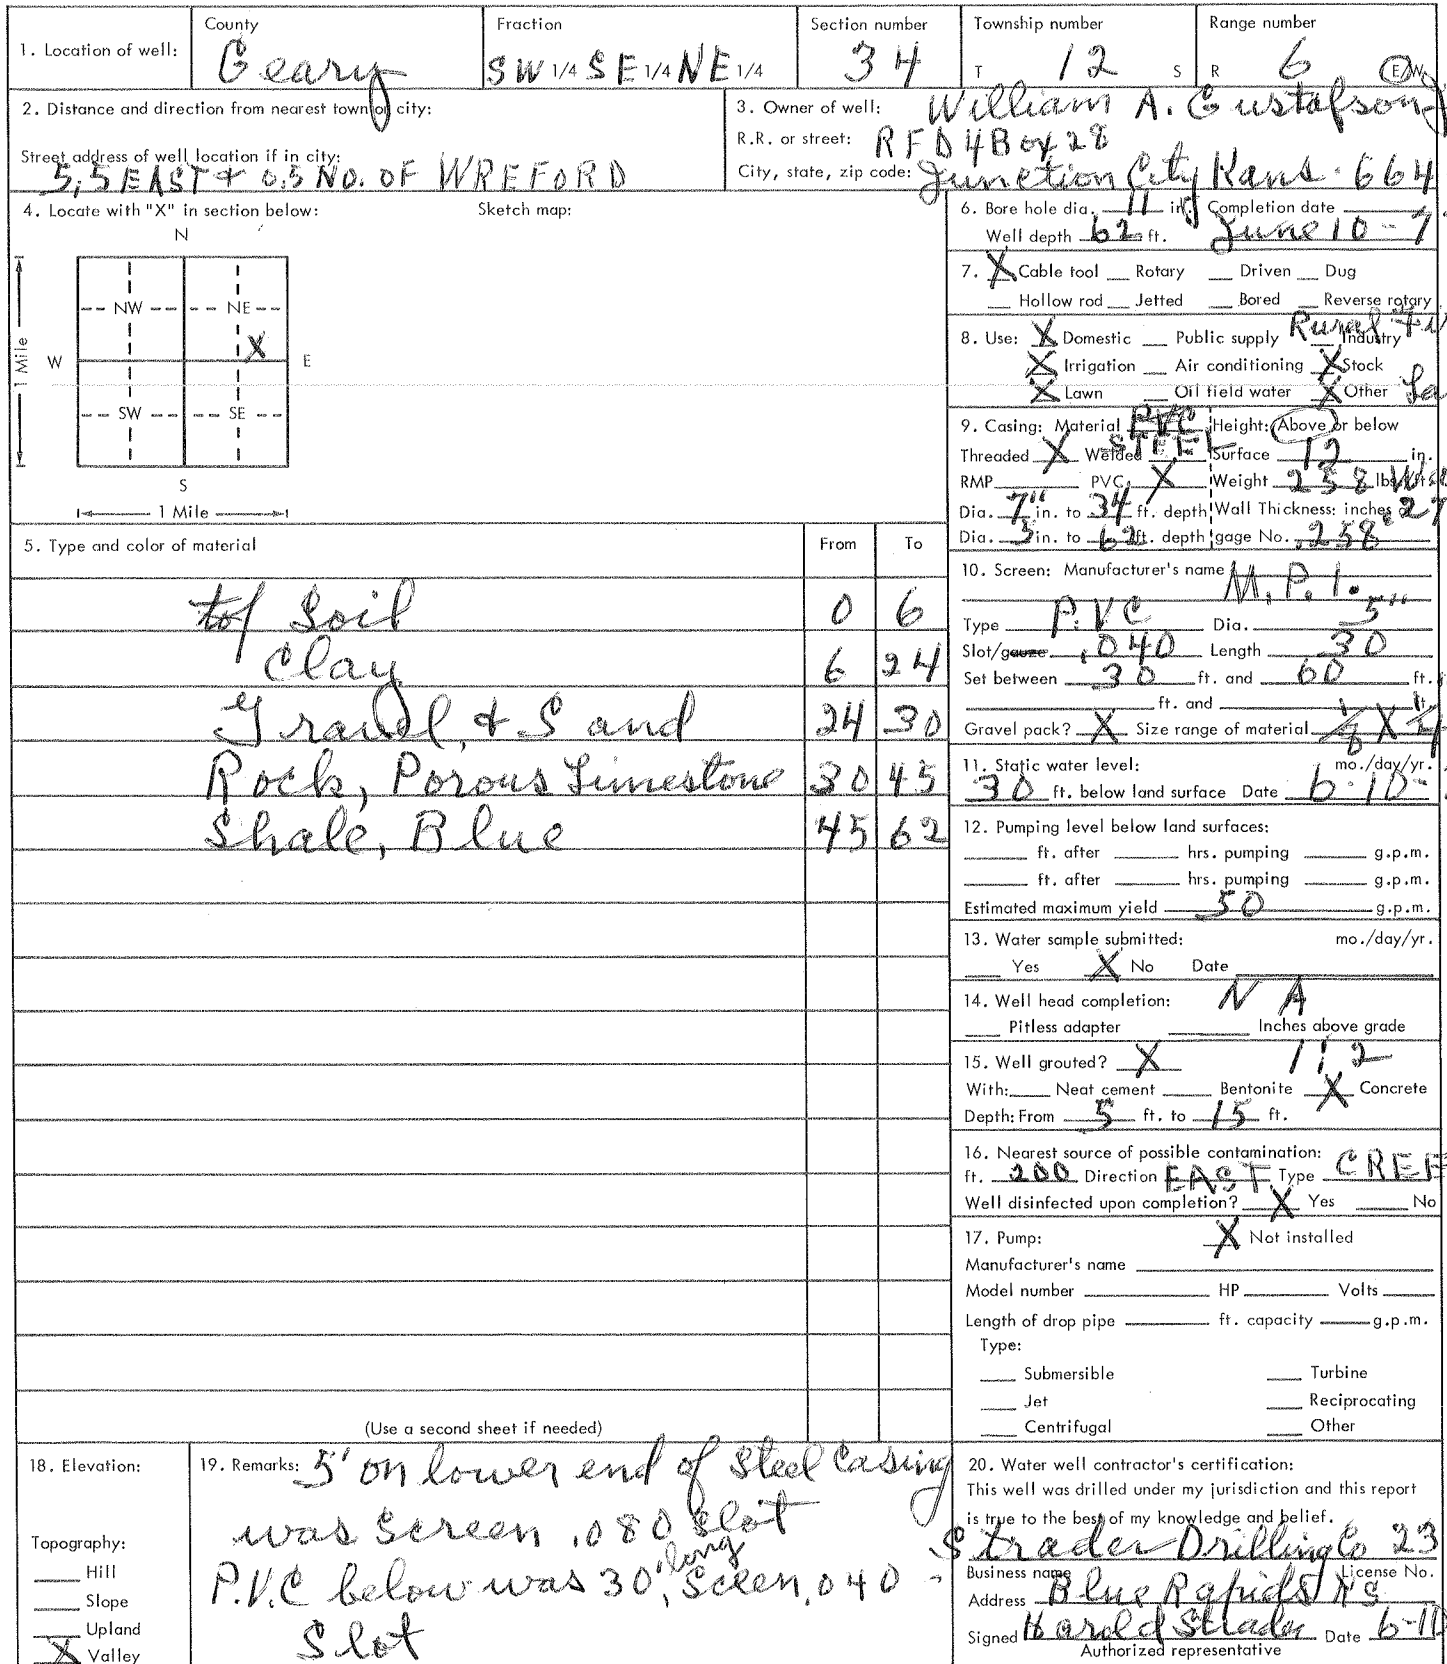 1. Location of well: County Geary Fraction SW 1/4 SE 1/4 NE 1/4 Section number 34 Township number T 12 S Range number R 6 E/W
2. Distance and direction from nearest town or city:
Street address of well location if in city:
5.5 EAST & 0.5 NO. OF WREFORD
3. Owner of well: William A. Gustafson
R.R. or street: RFD 4 Box 28
City, state, zip code: Junction City Kans. 664
4. Locate with "X" in section below: Sketch map:
N
NW NE
X
W E
SW SE
S
1 Mile
1 Mile
5. Type and color of material From To
top Soil 0 6
Clay 6 24
Gravel & Sand 24 30
Rock, Porous Limestone 30 45
Shale, Blue 45 62
(Use a second sheet if needed)
6. Bore hole dia. 11 in. Completion date
Well depth 62 ft. June 10-7
7. X Cable tool __ Rotary __ Driven __ Dug
__ Hollow rod __ Jetted __ Bored __ Reverse rotary
8. Use: X Domestic __ Public supply __ Industry Rural
X Irrigation __ Air conditioning X Stock
X Lawn __ Oil field water X Other
9. Casing: Material PVC Height: Above or below
STEEL
Threaded X Welded __ Surface 12 in.
RMP __ PVC X Weight 258 lbs.
Dia. 7" in. to 34 ft. depth Wall Thickness: inches .27
Dia. 5 in. to 62 ft. depth gage No. .258
10. Screen: Manufacturer's name M.P.I.
Type P.VC Dia. 5"
Slot/gauze .040 Length 30
Set between 30 ft. and 60 ft.
__ ft. and __ ft.
Gravel pack? X Size range of material 1/8 X 1/4
11. Static water level: mo./day/yr.
30 ft. below land surface Date 6-10-
12. Pumping level below land surfaces:
__ ft. after __ hrs. pumping __ g.p.m.
__ ft. after __ hrs. pumping __ g.p.m.
Estimated maximum yield 50 g.p.m.
13. Water sample submitted: mo./day/yr.
__ Yes X No Date
14. Well head completion: N A
__ Pitless adapter __ Inches above grade
15. Well grouted? X 1:2
With: __ Neat cement __ Bentonite X Concrete
Depth: From 5 ft. to 15 ft.
16. Nearest source of possible contamination:
ft. 200 Direction EAST Type CREE
Well disinfected upon completion? X Yes __ No
17. Pump: X Not installed
Manufacturer's name
Model number __ HP __ Volts
Length of drop pipe __ ft. capacity __ g.p.m.
Type:
__ Submersible __ Turbine
__ Jet __ Reciprocating
__ Centrifugal __ Other
18. Elevation:
Topography:
__ Hill
__ Slope
__ Upland
X Valley
19. Remarks: 5' on lower end of Steel Casing
was Screen .080 Slot
P.V.C below was 30' long Sceen .040 -
Slot
20. Water well contractor's certification:
This well was drilled under my jurisdiction and this report
is true to the best of my knowledge and belief.
Strader Drilling Co 23
Business name License No.
Address Blue Rapids Ks
Signed Harold Strader Date 6-10
Authorized representative